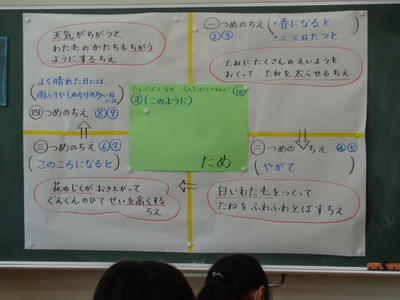 一つめのちえ
②③
春になると
二三日たつと
たねにたくさんのえいようを
おくって、たねを太らせるちえ
二つめのちえ
④⑤
やがて
白いわた毛をつくって
たねをふわふわとばすちえ
三つめのちえ ⑥⑦
このころになると
花のじくがおき上がって、
ぐんぐんのびてせいを高くする
ちえ
よく晴れた日には、
雨ふりやしめりけの多い日
には
四つめのちえ ⑧⑨
天気がちがうと、
わた毛のかたちもちがう
ようにするちえ
⑩
(このように)
ため